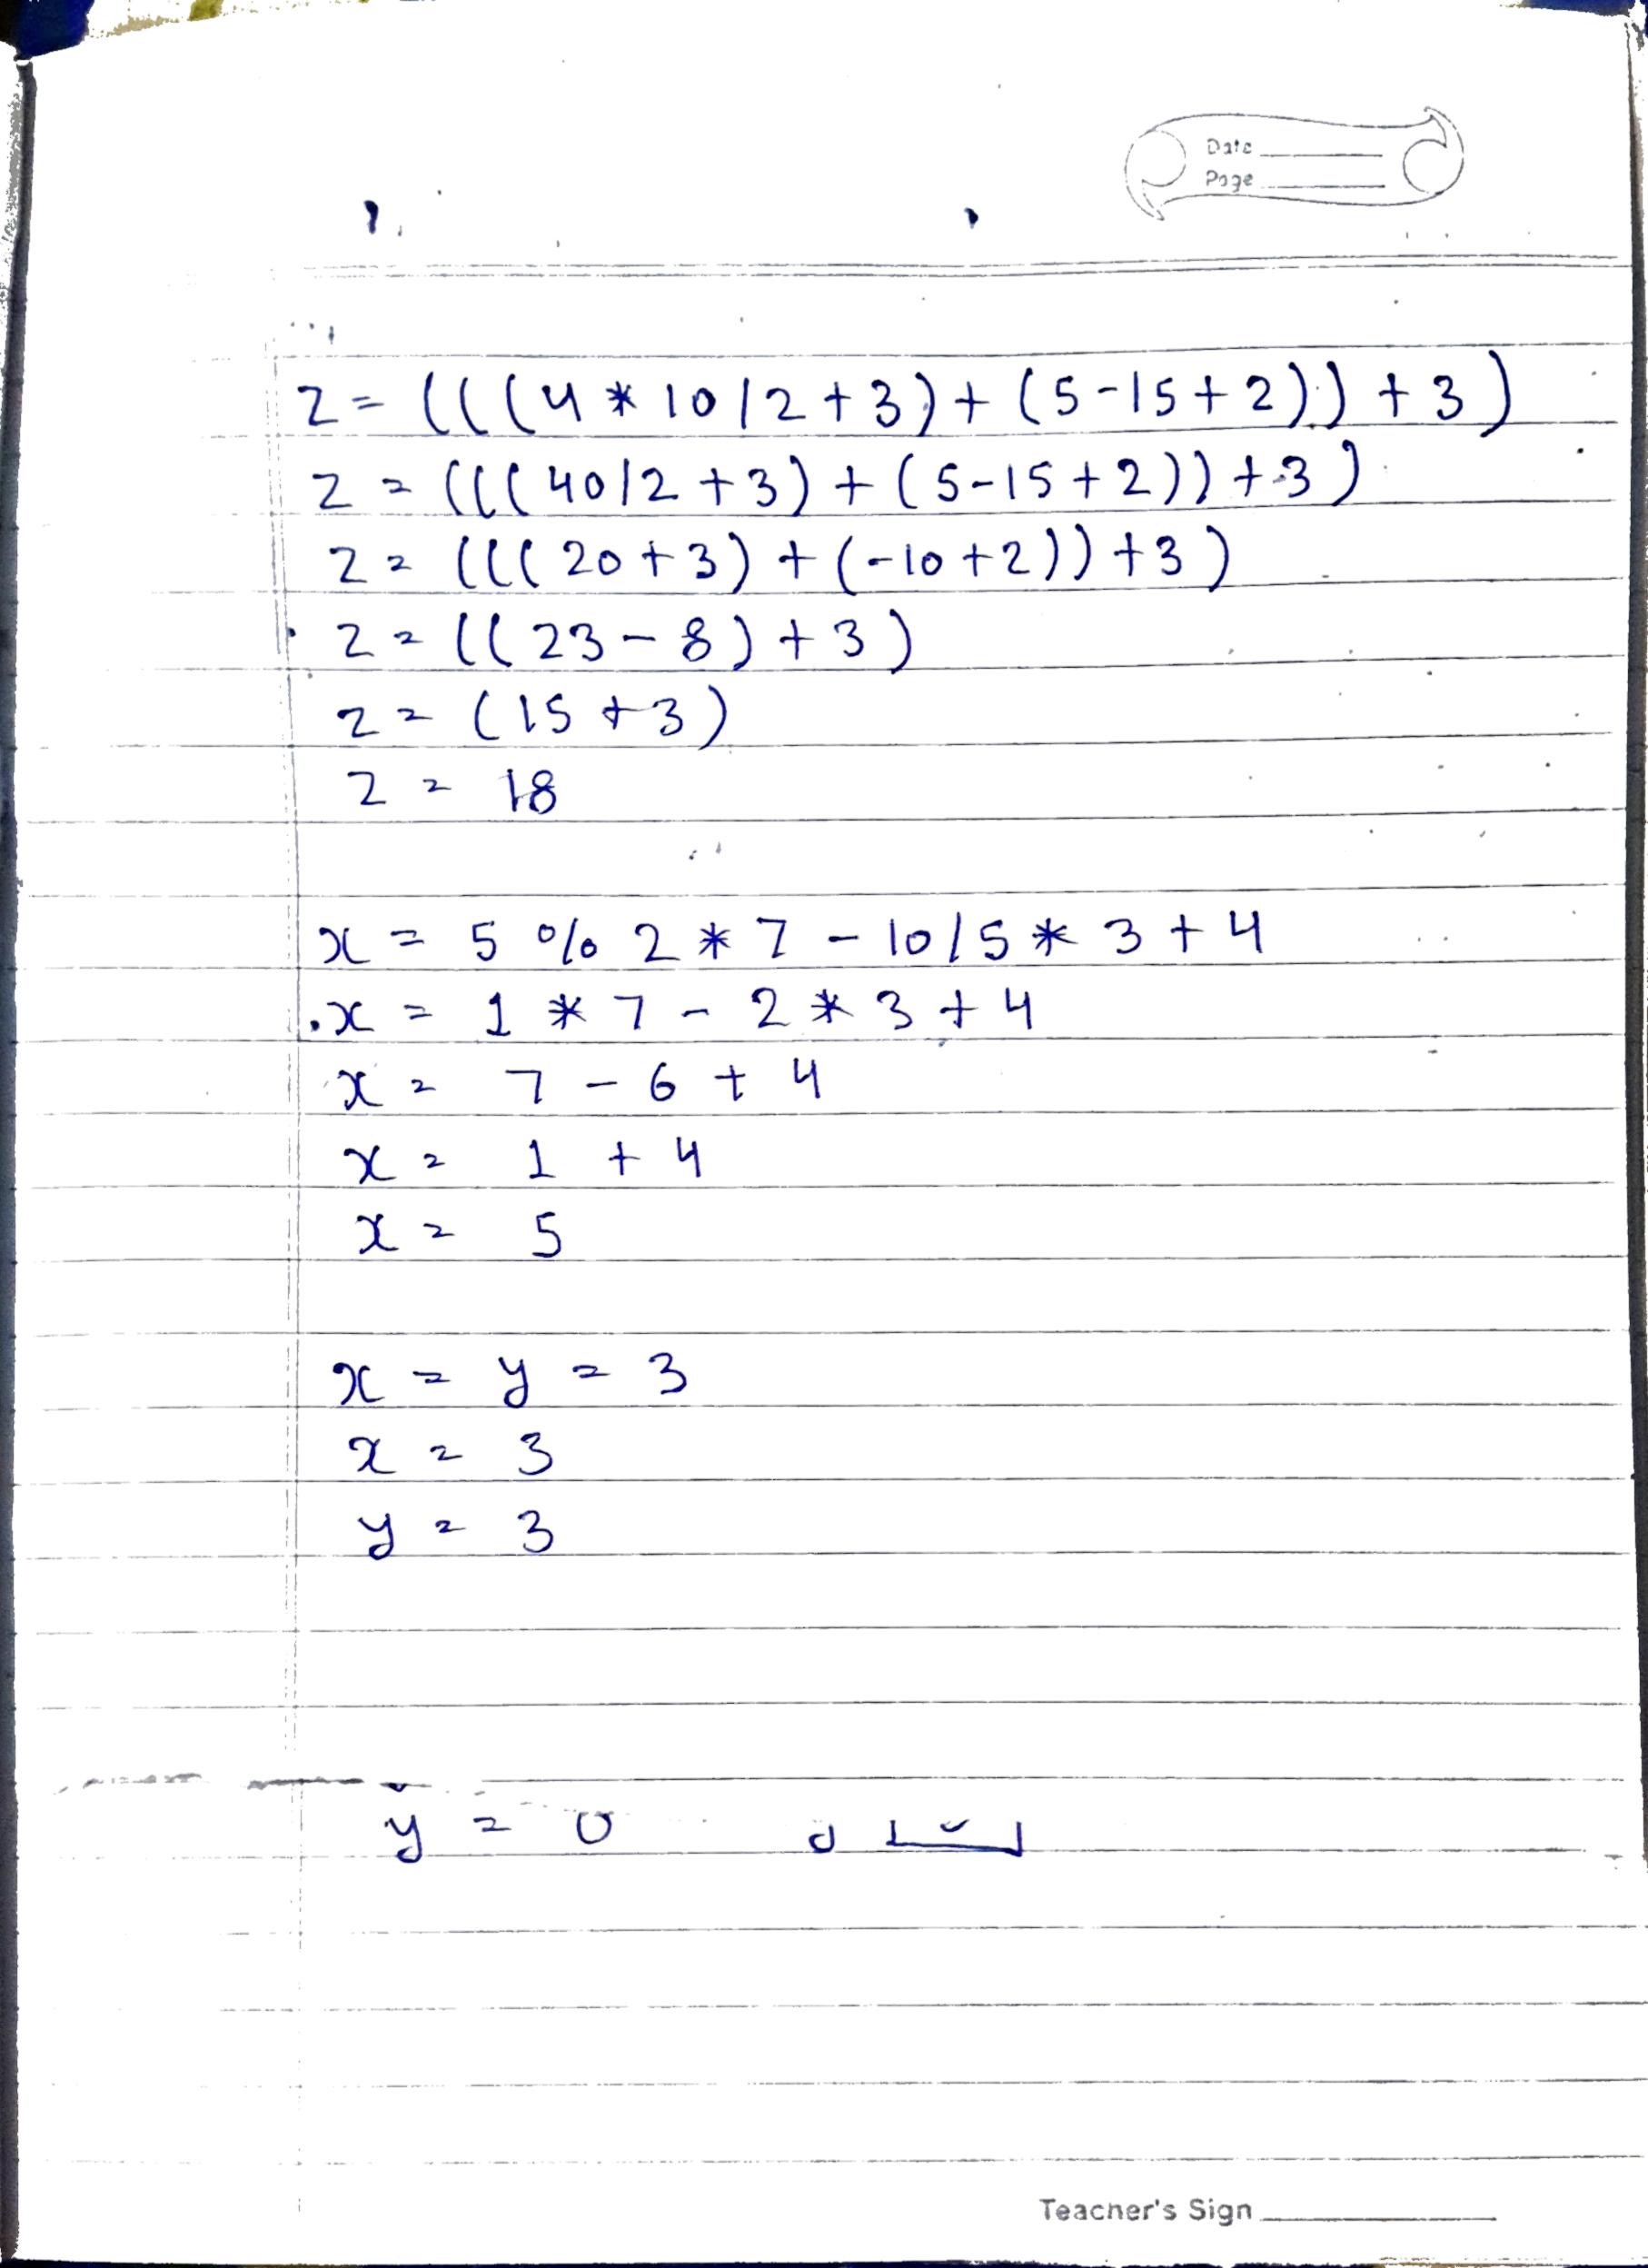 Date
Page
z = (((4 * 10 / 2 + 3) + (5 - 15 + 2)) + 3)
z = (((40 / 2 + 3) + (5 - 15 + 2)) + 3)
z = (((20 + 3) + (-10 + 2)) + 3)
z = ((23 - 8) + 3)
z = (15 + 3)
z = 18
x = 5 % 2 * 7 - 10 / 5 * 3 + 4
x = 1 * 7 - 2 * 3 + 4
x = 7 - 6 + 4
x = 1 + 4
x = 5
x = y = 3
x = 3
y = 3
y =
Teacher's Sign